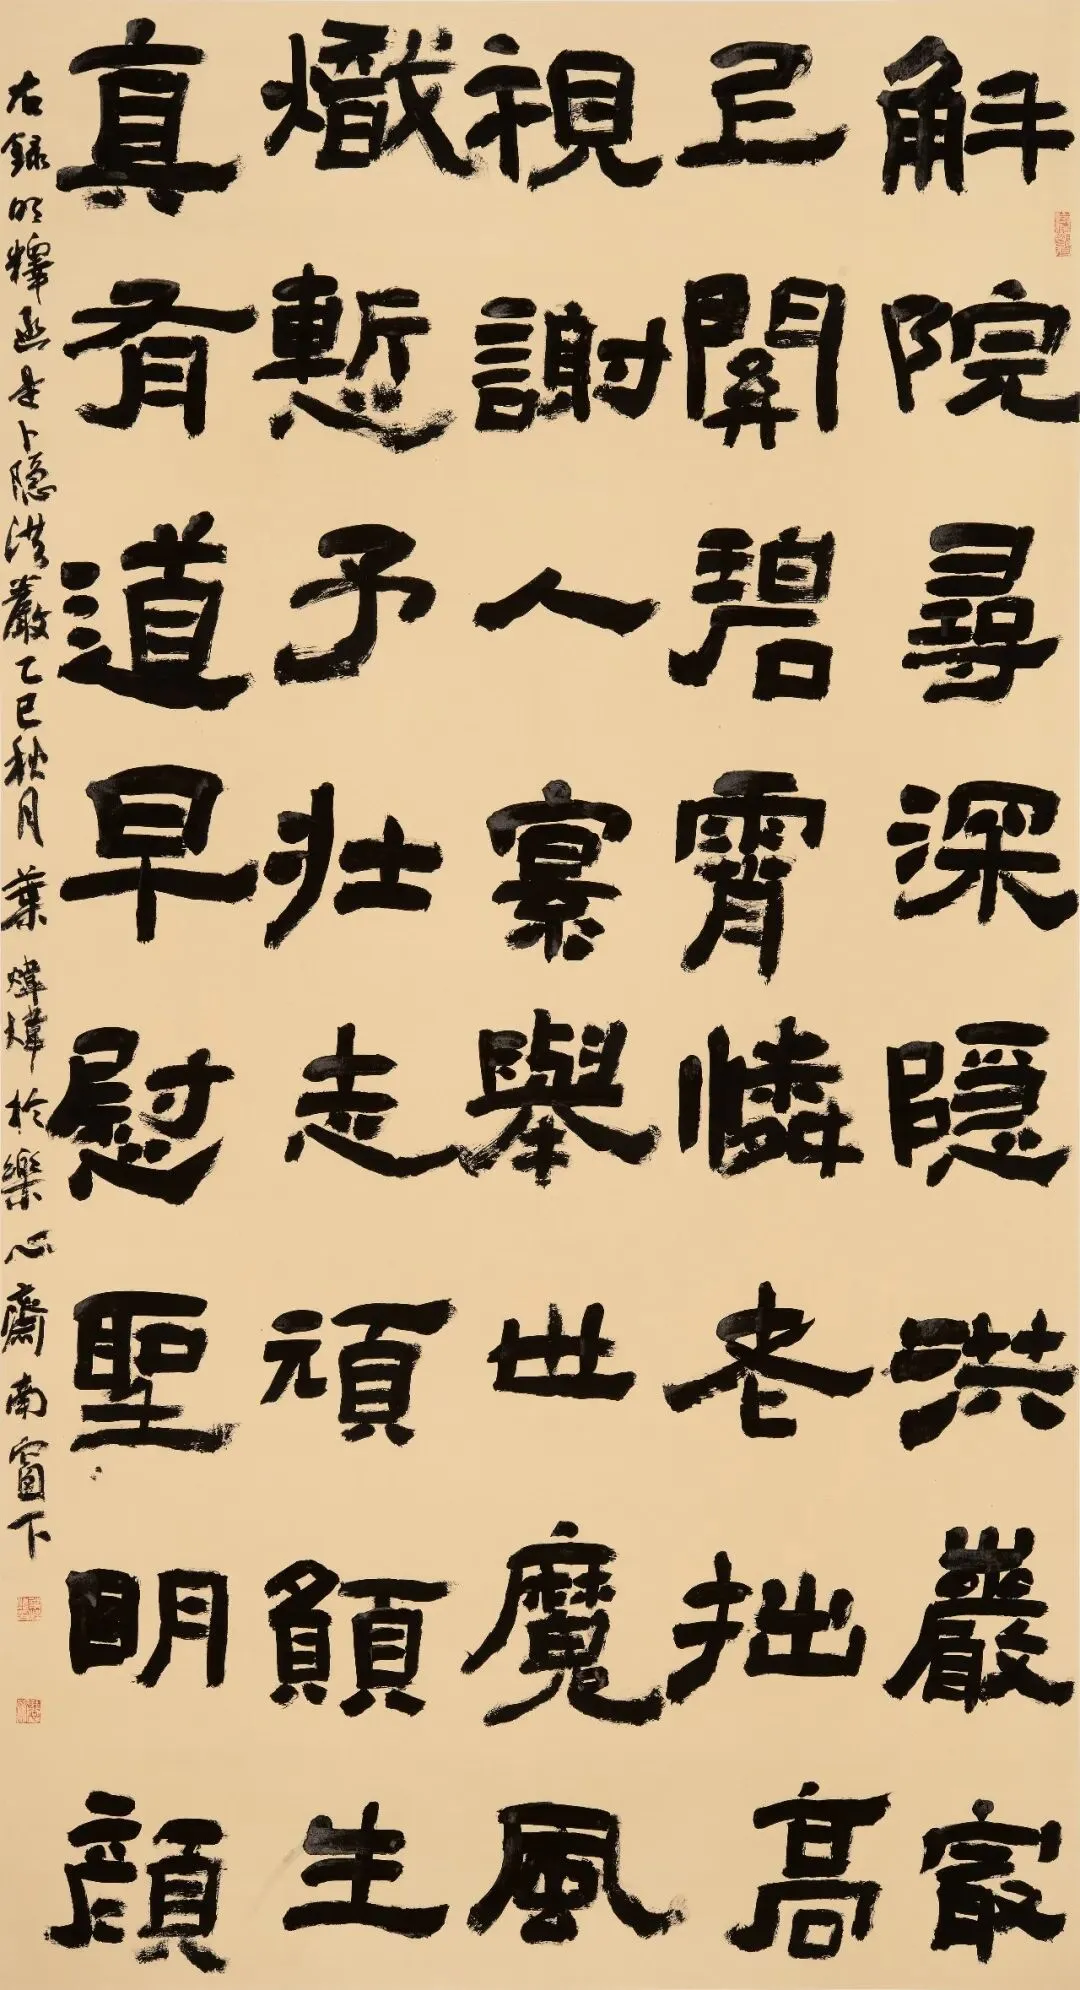 解院尋深隱洪巖寂
已關碧霄憐老拙高
視謝人寰舉世魔風
熾慙予壯志頑願生
真有道早慰聖明顏
右錄明釋函是卜隱洪巖乙巳秋月葉煒煒於樂心齋南窗下